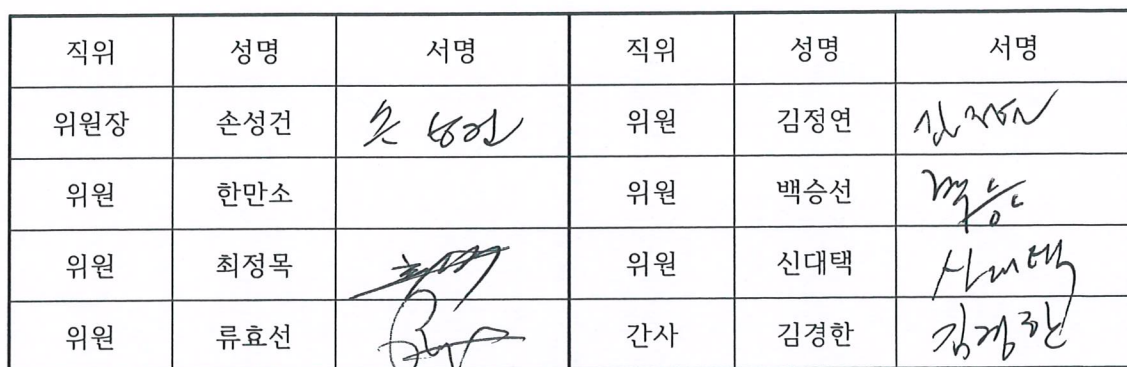 직위 성명 서명 직위 성명 서명
위원장 손성건 손성건 위원 김정연
위원 한만소 위원 백승선
위원 최정목 위원 신대택 신대택
위원 류효선 간사 김경한 김경한